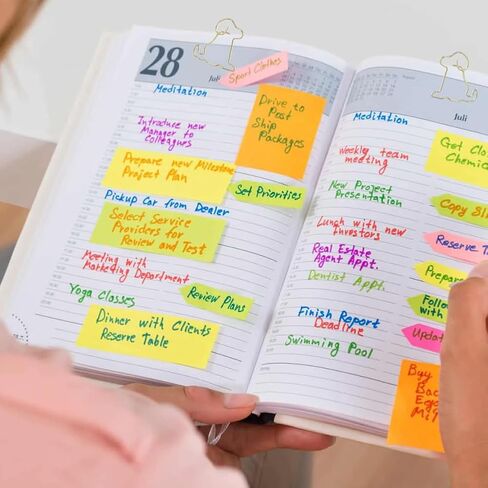 28
Juli
Sport Clothes
Meditation
Drive to
Post
Ship
Packages
Introduce new
Manager to
Colleagues
Prepare new Milestone
Project Plan
Set Priorities
Pickup Car from Dealer
Select Service
Providers for
Review and Test
Meeting with
Marketing Department
Yoga Classes
Review Plans
Dinner with Clients
Reserve Table
Juli
Meditation
Get Clo
Chemic
Weekly team
meeting
New Project
Presentation
Copy Sli
Lunch with new
Investors
Reserve T
Real Estate
Agent Appt.
Prepare
Dentist Appt.
Follow
with
Finish Report
Deadline
Updat
Swimming Pool
Buy
Bac
Egg
Mil